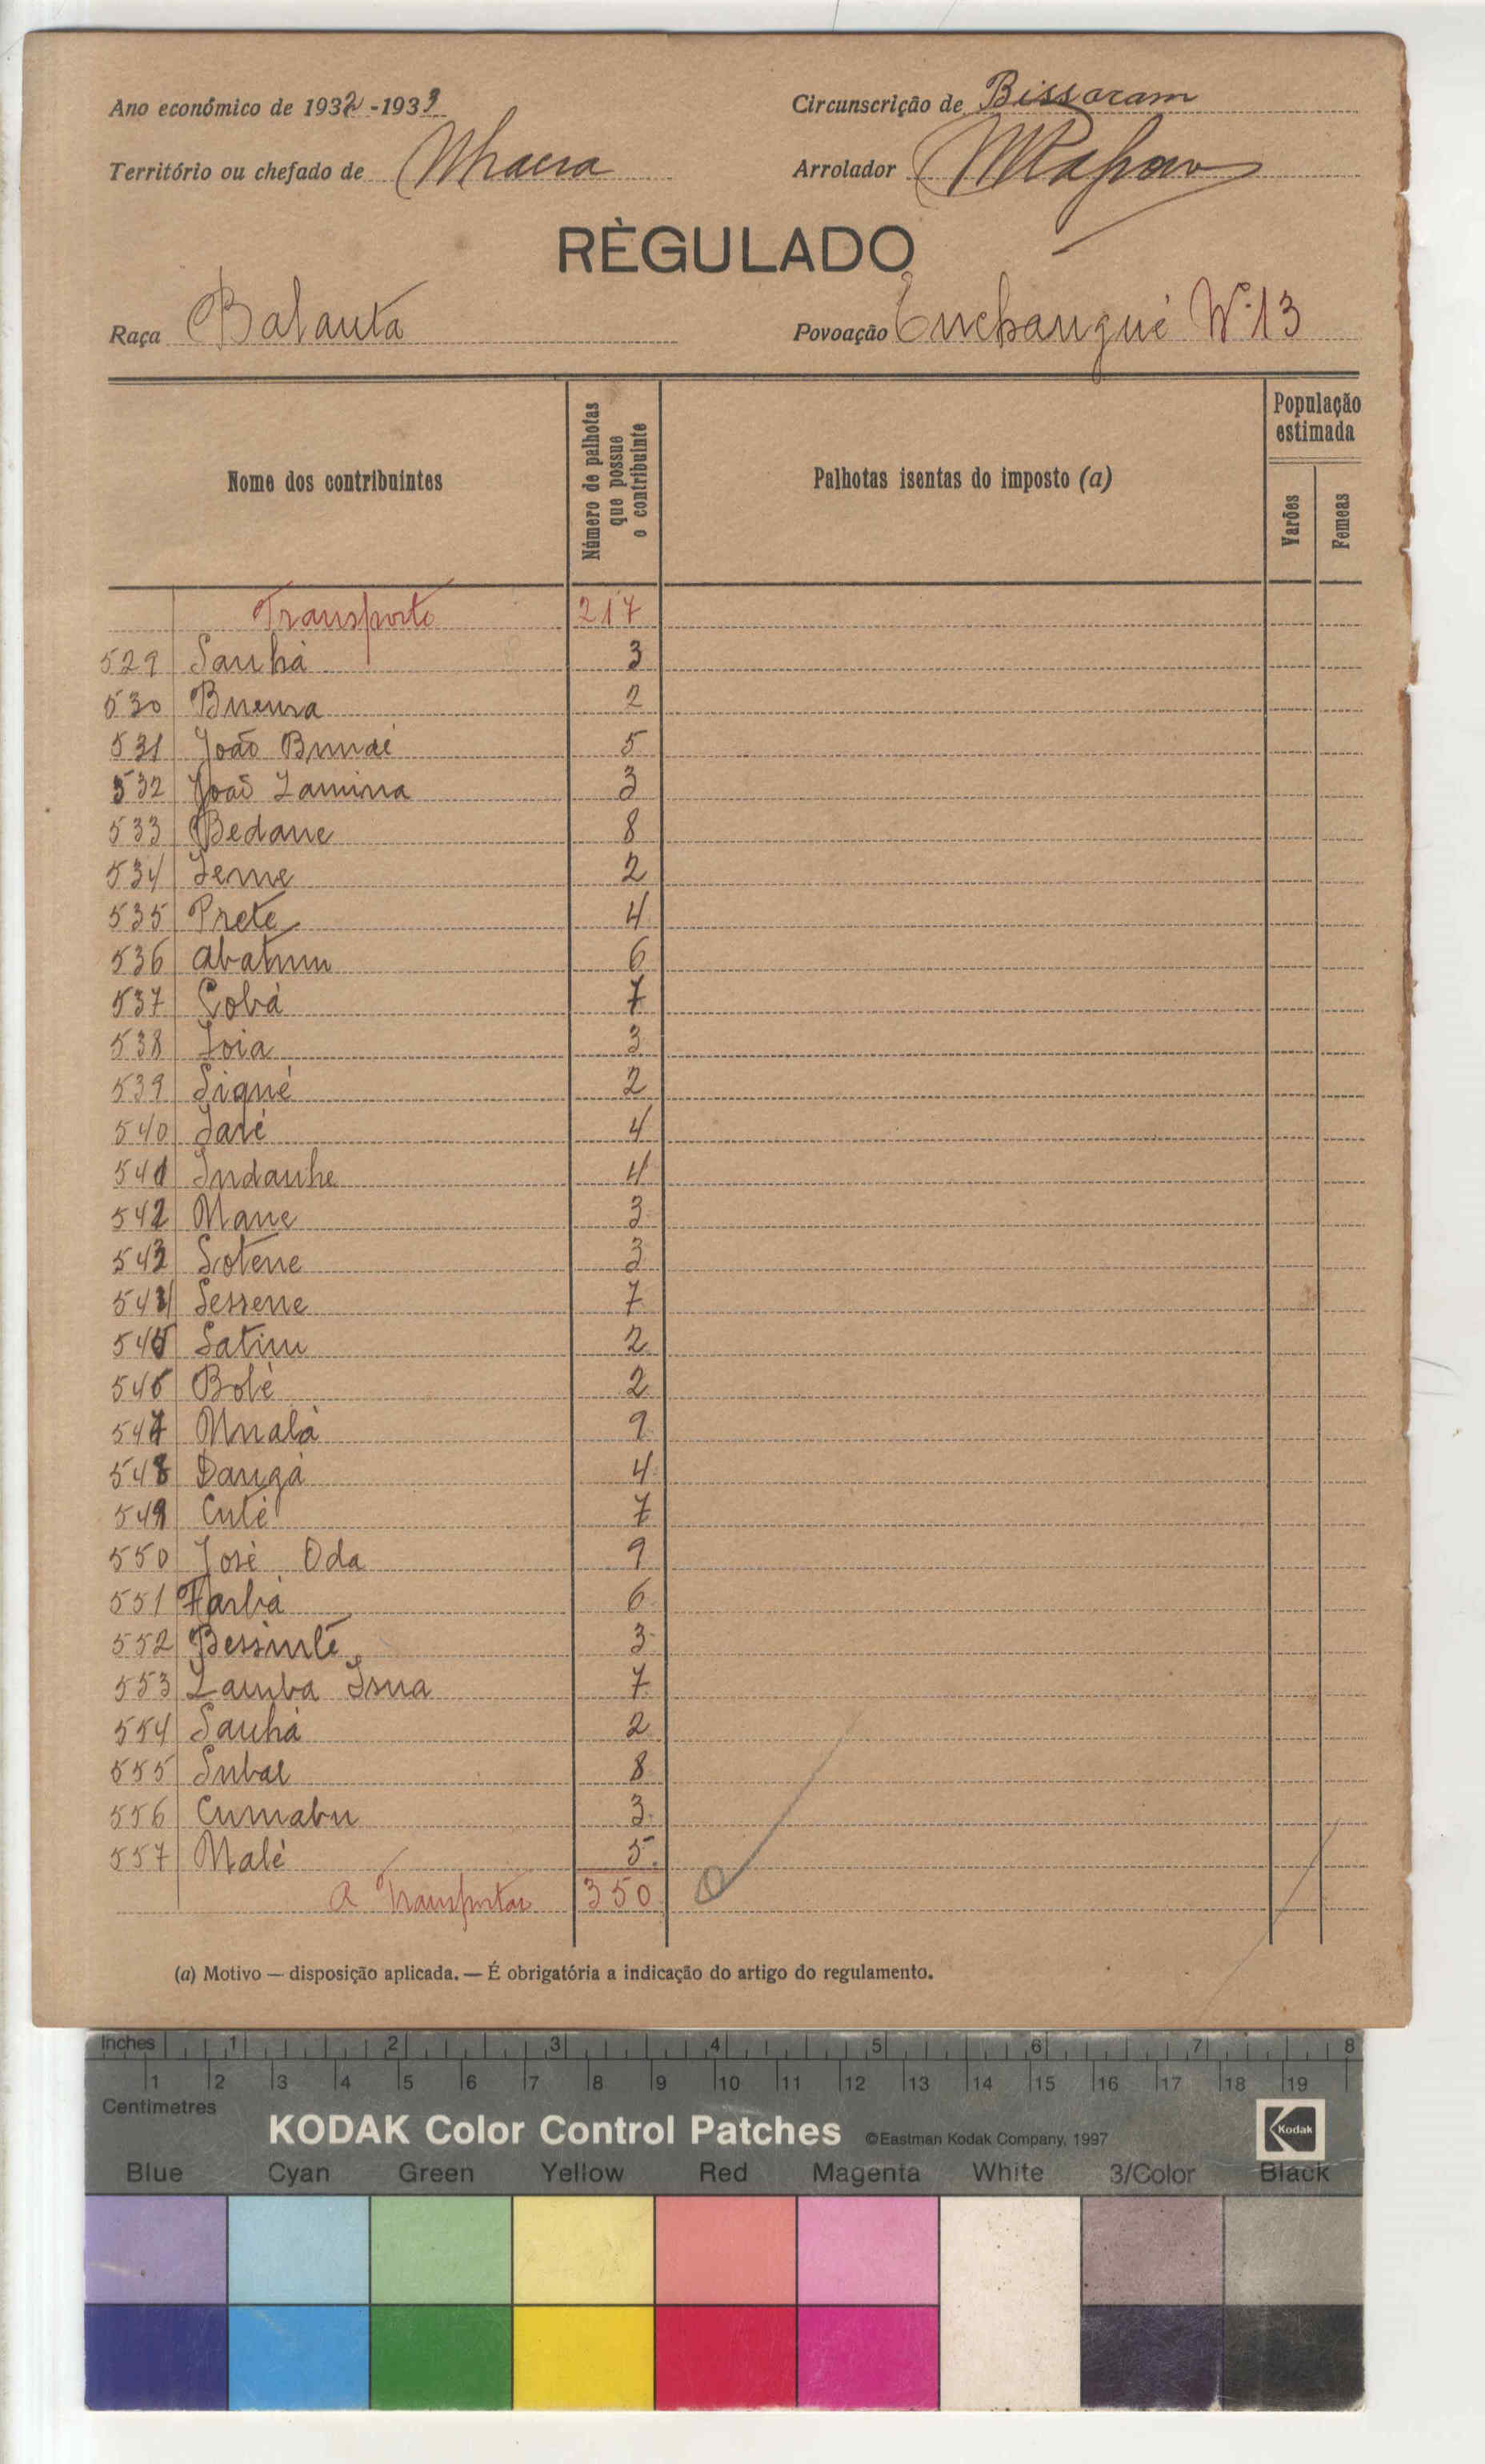 Ano económico de 1932-1933
Circunscrição de Bissoram
Território ou chefado de
Arrolador
RÈGULADO
Raça Balanta
Povoação Enchangué Nº 13
Nome dos contribuintes
Número de palhotas que possue o contribuinte
Palhotas isentas do imposto (a)
População estimada
Varões
Femeas
Transporte 217
529 Sanhá 3
530 2
531 João 5
532 João Lamina 3
533 Bedane 8
534 2
535 Prete 4
536 6
537 7
538 3
539 Siqué 2
540 4
541 Indanhe 4
542 Mane 3
543 Sotene 3
544 7
545 2
546 2
547 9
548 Dangá 4
549 Cuté 7
550 José Oda 9
551 6
552 3
553 7
554 Sanhá 2
555 8
556 Cumabu 3
557 Malé 5
A Transportar 350
(a) Motivo — disposição aplicada. — É obrigatória a indicação do artigo do regulamento.
Inches 1 2 3 4 5 6 7 8
1 2 3 4 5 6 7 8 9 10 11 12 13 14 15 16 17 18 19
Centimetres
KODAK Color Control Patches ©Eastman Kodak Company, 1997 Kodak
Blue Cyan Green Yellow Red Magenta White 3/Color Black